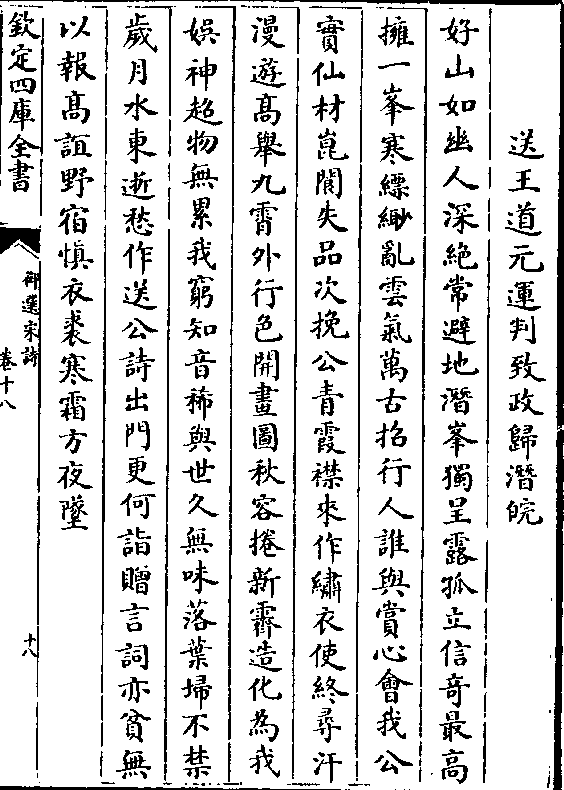 送王道元運判致政歸潛皖
好山如幽人深絶常避地潛峯獨呈露孤立信竒最高
擁一峯寒縹緲亂雲氣萬古招行人誰與賞心會我公
實仙材崑閬失品次挽公青霞襟來作繡衣使終尋汗
漫遊髙舉九霄外行色開畫圖秋容捲新霽造化為我
娯神超物無累我窮知音稀與世久無味落葉埽不禁
歲月水東逝愁作送公詩出門更何詣贈言詞亦貧無
以報髙誼野宿慎衣裘寒霜方夜墜
欽定四庫全書
御選宋詩
卷十八
十八